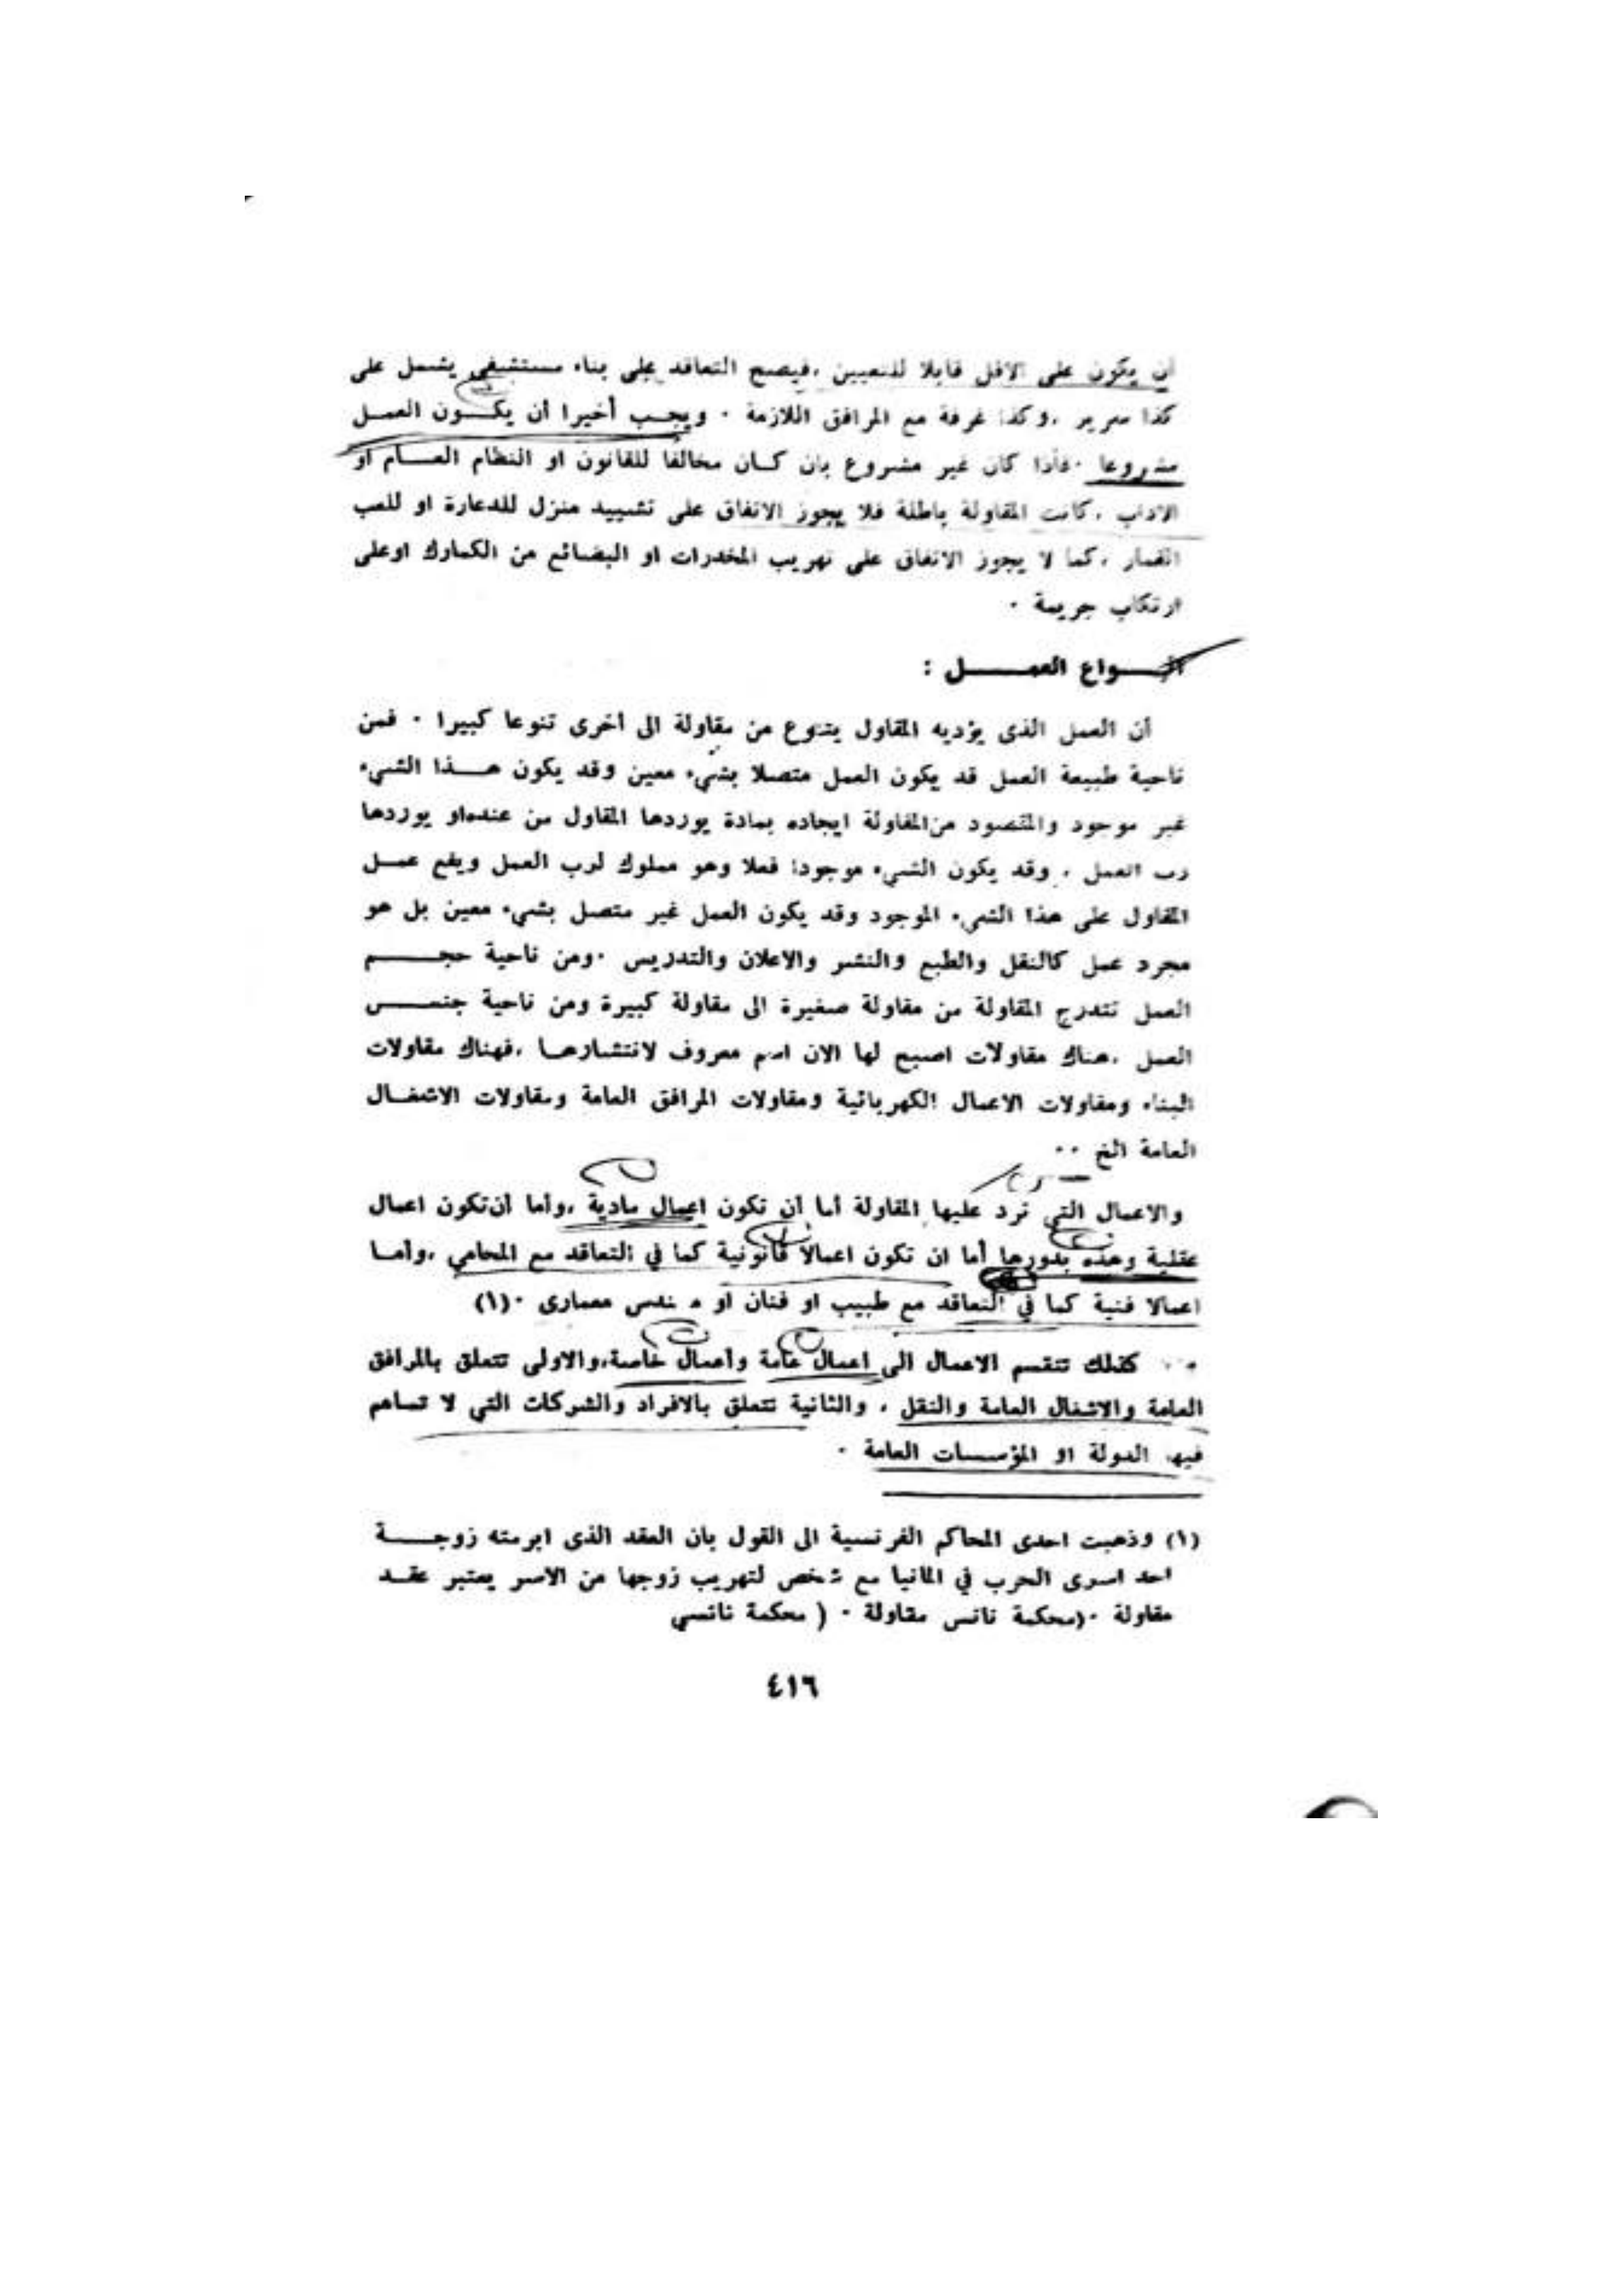 أن يكون على الاقل قابلا للتعيين ،فيصح التعاقد على بناء مستشفى يشمل على
كذا سرير ،وكذا غرفة مع المرافق اللازمة ٠ ويجب أخيرا أن يكـــون العمـل
مشروعا ٠فاذا كان غير مشروع بان كـان مخالفا للقانون او النظام العــام او
الاداب ،كانت المقاولة باطلة فلا يجوز الاتفاق على تشييد منزل للدعارة او للعب
القمار ،كما لا يجوز الاتفاق على تهريب المخدرات او البضائع من الكمارك اوعلى
ارتكاب جريمة ٠
انــــواع العمـــــــل :
أن العمل الذى يؤديه المقاول يتنوع من مقاولة الى أخرى تنوعا كبيرا ٠ فمن
ناحية طبيعة العمل قد يكون العمل متصلا بشيء معين وقد يكون هــذا الشيء
غير موجود والمقصود من المقاولة ايجاده بمادة يوردها المقاول من عنده او يوردها
رب العمل ٠ وقد يكون الشيء موجودا فعلا وهو مملوك لرب العمل ويقع عمـل
المقاول على هذا الشيء الموجود وقد يكون العمل غير متصل بشيء معين بل هو
مجرد عمل كالنقل والطبع والنشر والاعلان والتدريس ٠ومن ناحية حجــــــم
العمل تتدرج المقاولة من مقاولة صغيرة الى مقاولة كبيرة ومن ناحية جنـــس
العمل ،هناك مقاولات اصبح لها الان اسم معروف لانتشارهـا ،فهناك مقاولات
البناء ومقاولات الاعمال الكهربائية ومقاولات المرافق العامة ومقاولات الاشغـال
العامة الخ ٠٠
والاعمال التي ترد عليها المقاولة أما أن تكون اعمال مادية ،وأما ان تكون اعمال
عقلية وهذه بدورها أما ان تكون اعمالا قانونية كما في التعاقد مع المحامي ،وأمـا
اعمالا فنية كما في التعاقد مع طبيب او فنان او مهندس معمارى ٠(١)
كذلك تنقسم الاعمال الى اعمال عامة وأعمال خاصة،والاولى تتعلق بالمرافق
العامة والاشغال العامة والنقل ، والثانية تتعلق بالافراد والشركات التي لا تساهم
فيها الدولة او المؤسسات العامة ٠
(١) وذهبت احدى المحاكم الفرنسية الى القول بان العقد الذى ابرمته زوجـــة
احد اسرى الحرب في المانيا مع شخص لتهريب زوجها من الاسر يعتبر عقـد
مقاولة ٠(محكمة نانس مقاولة ٠ ( محكمة نانسي
٤١٦